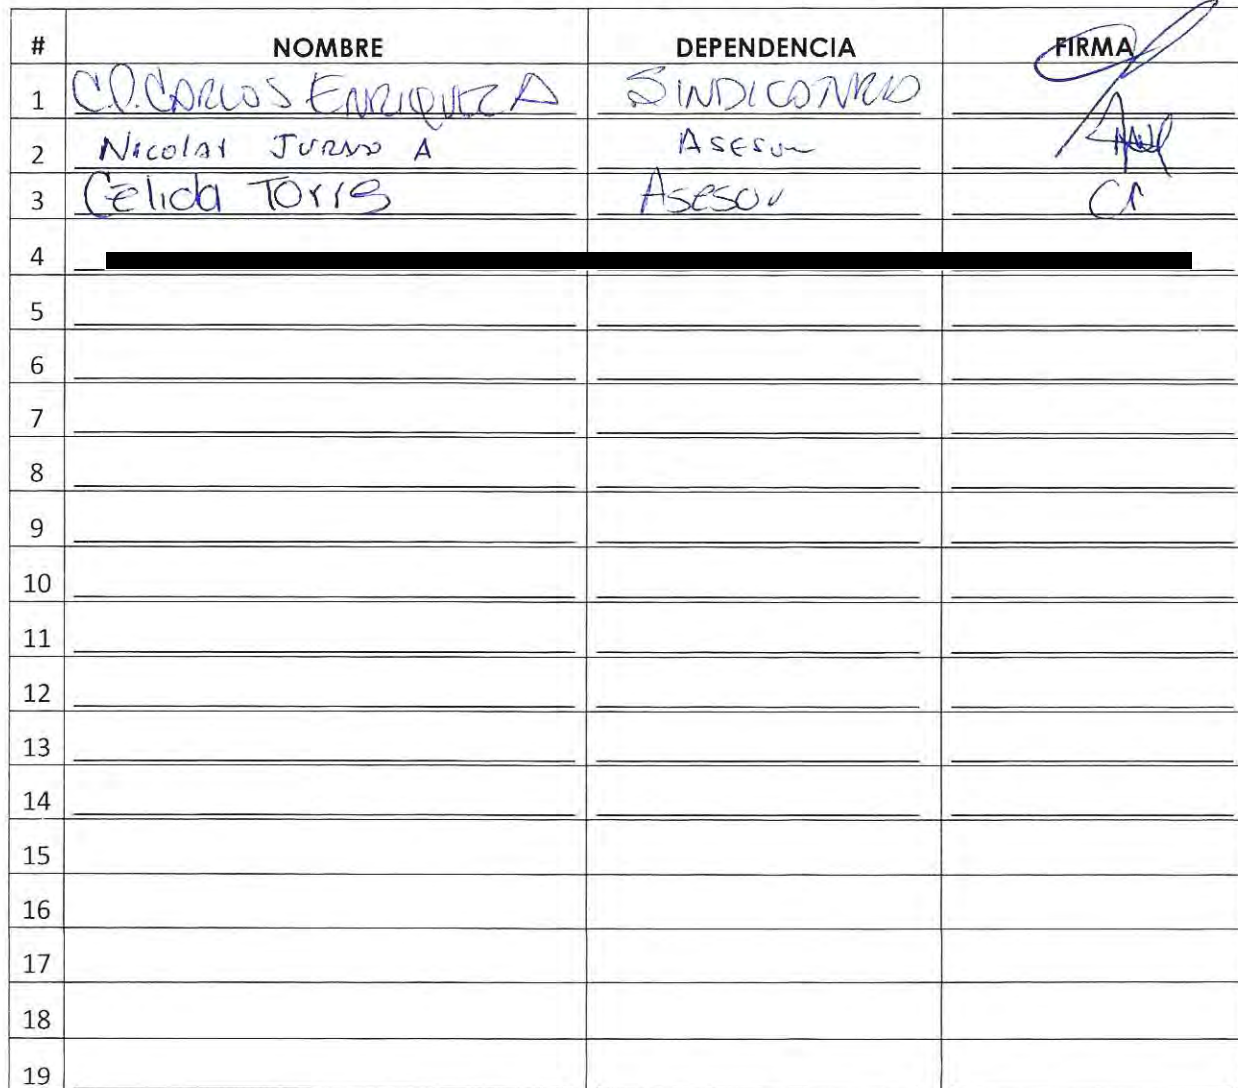 # NOMBRE DEPENDENCIA FIRMA
1 C.P. CARLOS ENRIQUEZ A
2 Nicolas JURADO A Asesor
3 Celida Torres Asesor
4
5
6
7
8
9
10
11
12
13
14
15
16
17
18
19